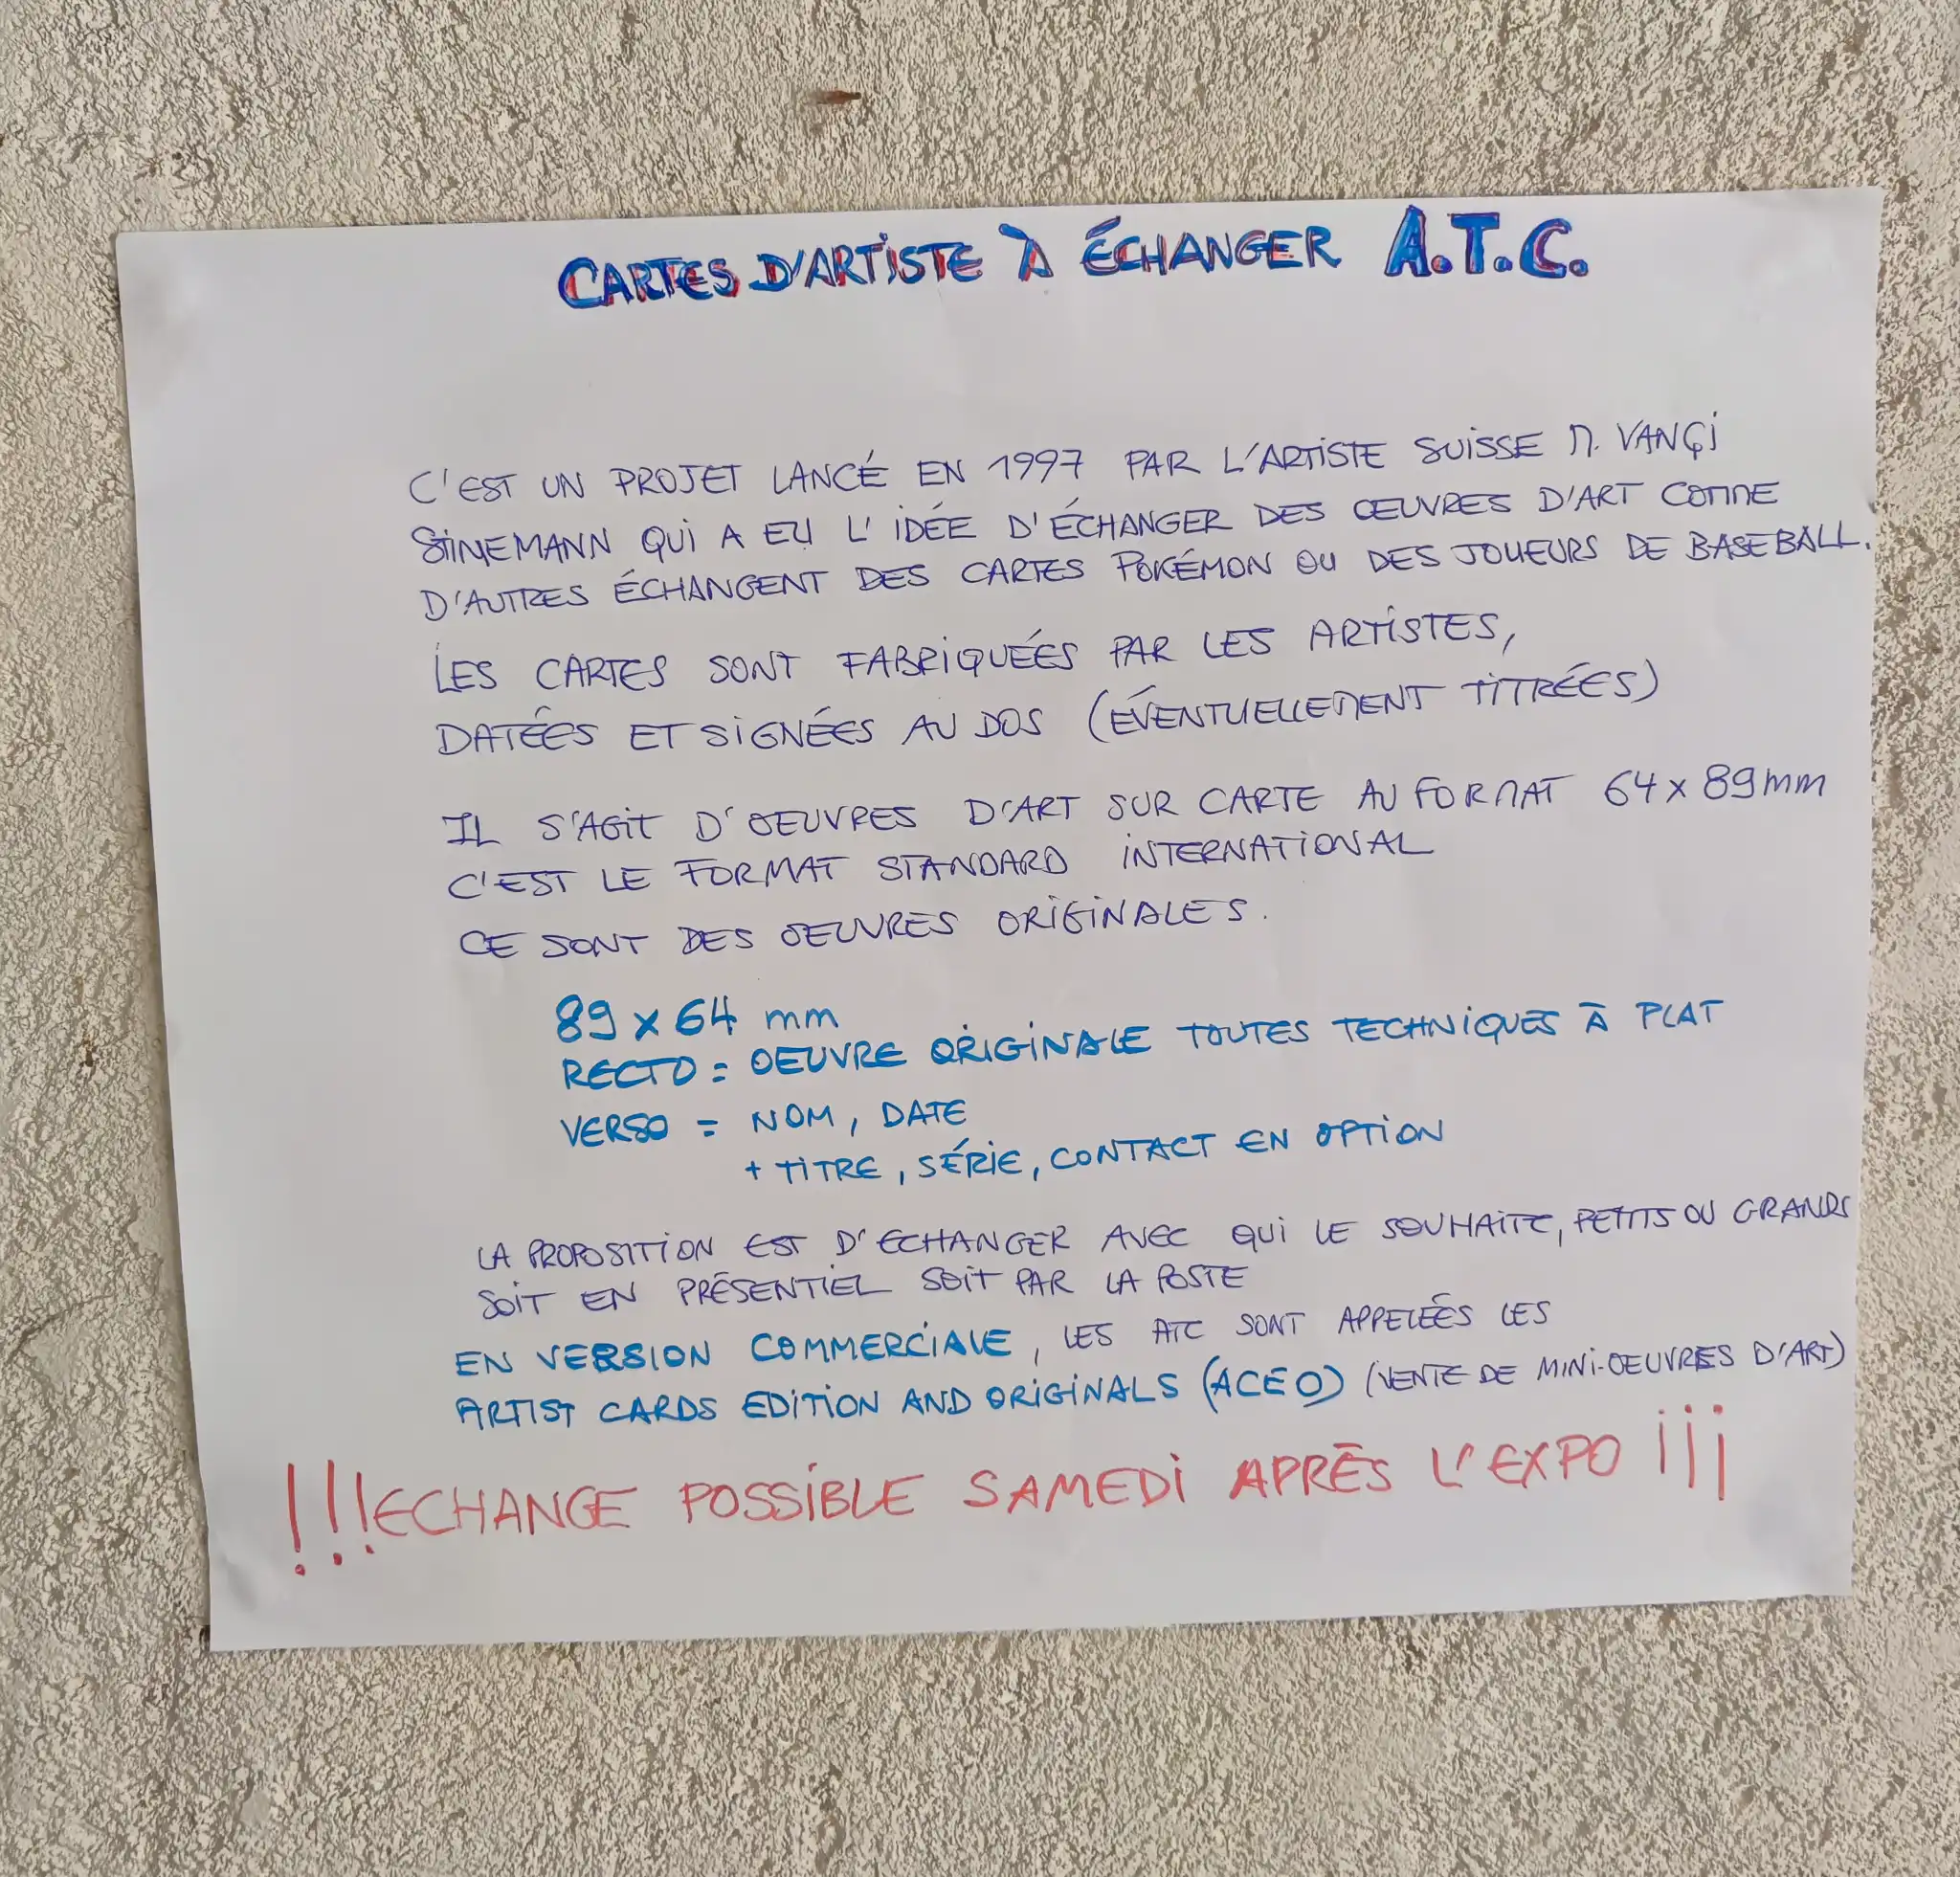 CARTES D'ARTISTE À ÉCHANGER A.T.C.
C'EST UN PROJET LANCÉ EN 1997 PAR L'ARTISTE SUISSE M. VANÇI
STINEMANN QUI A EU L'IDÉE D'ÉCHANGER DES ŒUVRES D'ART COMME
D'AUTRES ÉCHANGENT DES CARTES POKÉMON OU DES JOUEURS DE BASEBALL.
LES CARTES SONT FABRIQUÉES PAR LES ARTISTES,
DATÉES ET SIGNÉES AU DOS (ÉVENTUELLEMENT TITRÉES)
IL S'AGIT D'OEUVRES D'ART SUR CARTE AU FORMAT 64 x 89 mm
C'EST LE FORMAT STANDARD INTERNATIONAL
CE SONT DES OEUVRES ORIGINALES.
89 x 64 mm
RECTO = OEUVRE ORIGINALE TOUTES TECHNIQUES À PLAT
VERSO = NOM, DATE
+ TITRE, SÉRIE, CONTACT EN OPTION
LA PROPOSITION EST D'ECHANGER AVEC QUI LE SOUHAITE, PETITS OU GRANDS
SOIT EN PRÉSENTIEL SOIT PAR LA POSTE
EN VERSION COMMERCIALE, LES ATC SONT APPELÉES LES
ARTIST CARDS EDITION AND ORIGINALS (ACEO) (VENTE DE MINI-OEUVRES D'ART)
!!!ECHANGE POSSIBLE SAMEDI APRÈS L'EXPO ¡¡¡